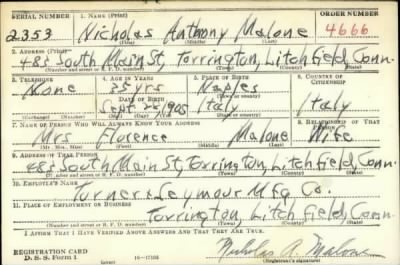 SERIAL NUMBER 1. NAME (Print) ORDER NUMBER
2353 Nicholas Anthony Malone 4666
(First) (Middle) (Last)
2. ADDRESS (Print)
483 South Main St, Torrington, Litchfield, Conn.
(Number and street or R. F. D. number) (Town) (County) (State)
3. TELEPHONE 4. AGE IN YEARS 5. PLACE OF BIRTH 6. COUNTRY OF CITIZENSHIP
None 35 yrs Naples
DATE OF BIRTH (Town or county)
Sept 1905 Italy Italy
(Exchange) (Number) (Mo.) (Day) (Yr.) (State or country)
7. NAME OF PERSON WHO WILL ALWAYS KNOW YOUR ADDRESS 8. RELATIONSHIP OF THAT PERSON
Mrs Florence Malone Wife
(Mr., Mrs., Miss) (First) (Middle) (Last)
9. ADDRESS OF THAT PERSON
483 South Main St, Torrington, Litchfield, Conn.
(Number and street or R. F. D. number) (Town) (County) (State)
10. EMPLOYER'S NAME
Turner & Seymour Mfg Co.
11. PLACE OF EMPLOYMENT OR BUSINESS
Torrington, Litchfield, Conn.
(Number and street or R. F. D. number) (Town) (County) (State)
I AFFIRM THAT I HAVE VERIFIED ABOVE ANSWERS AND THAT THEY ARE TRUE.
REGISTRATION CARD Nicholas A. Malone
D. S. S. Form 1 (over) 16—17105 (Registrant's signature)